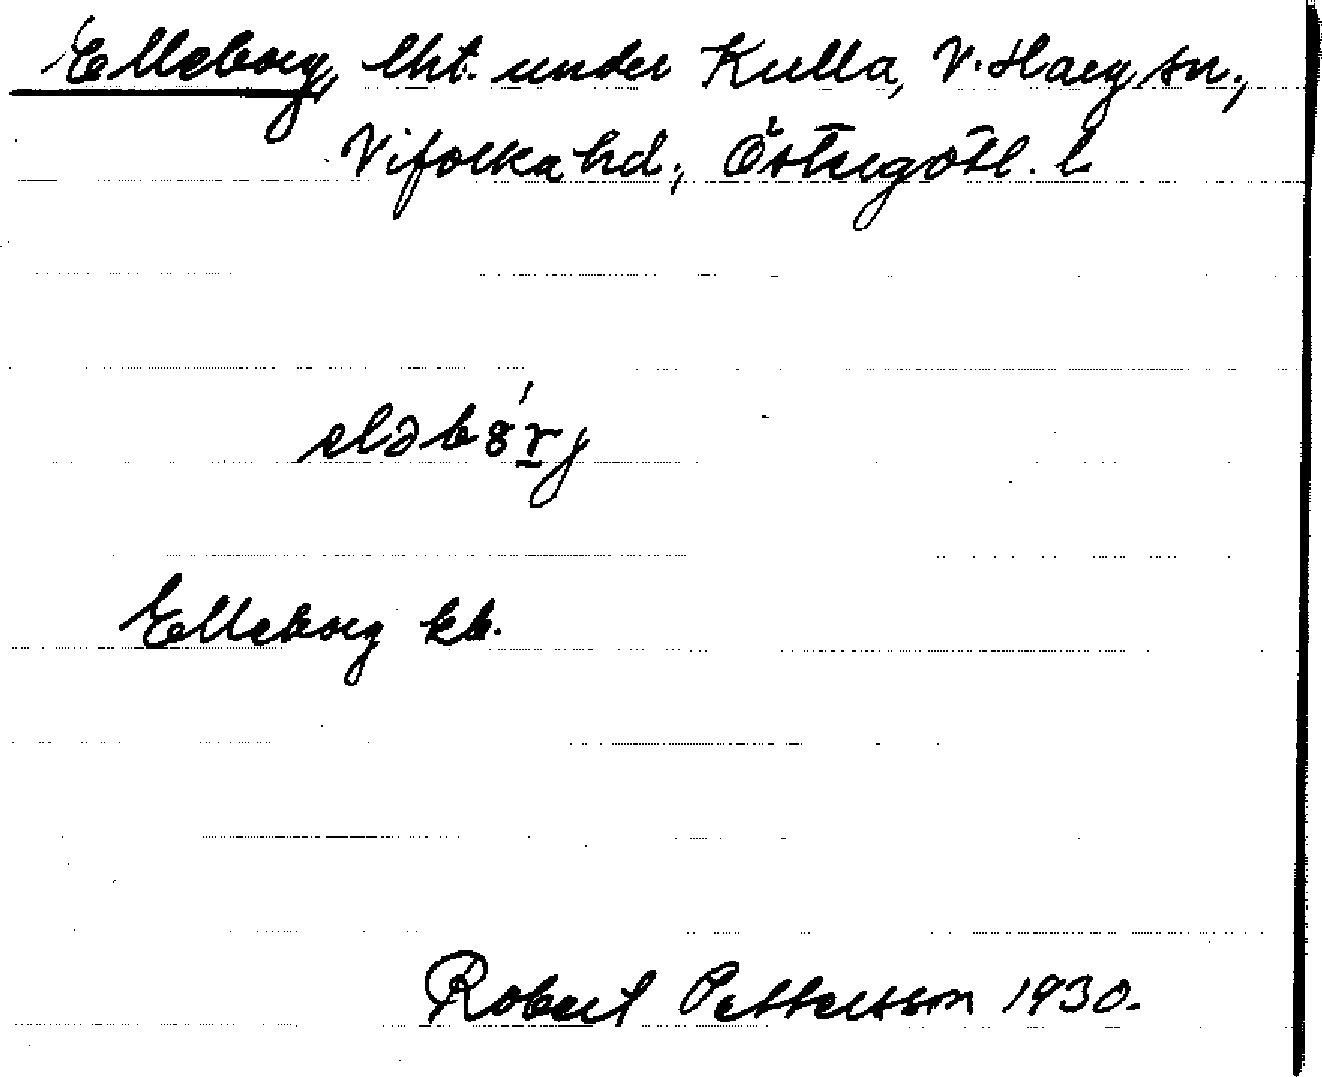 Elleborg, lht. under Kulla, V. Harg sn.,
Vifolka hd., Östergötl. l
eləbȣ́rj
Elleborg kb.
Robert Pettersson 1930.